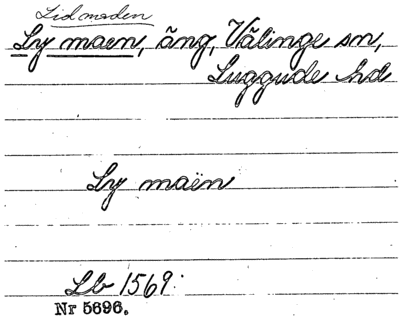 Lidmaden
Ly maen, äng, Välinge sn,
Luggude hd
Ly maën
Lb 1569:
Nr 5696.